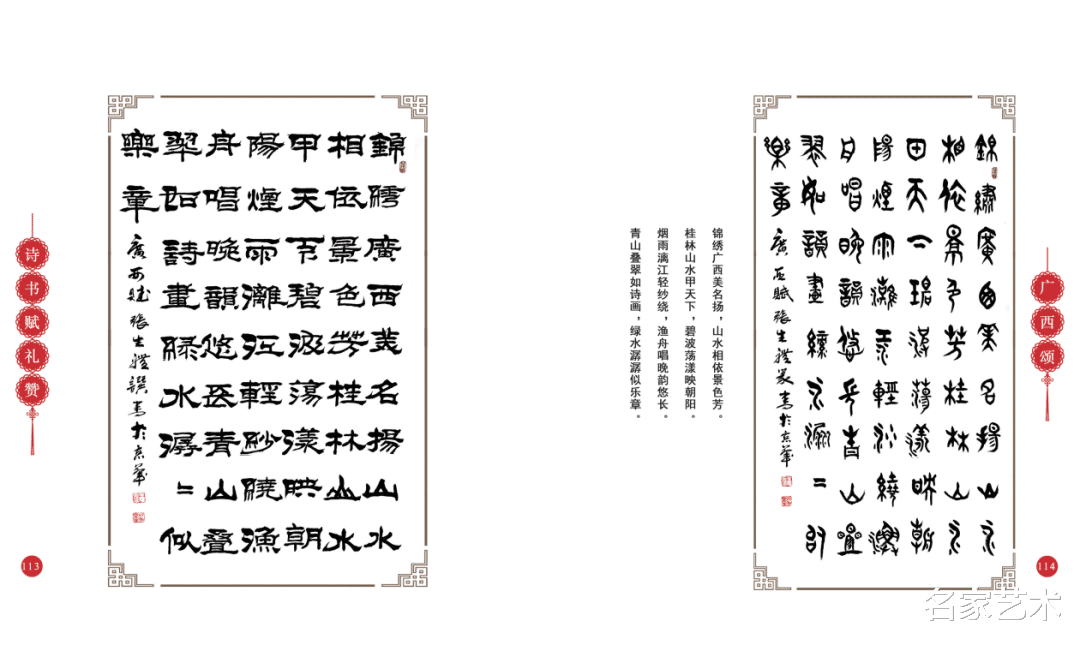 诗书赋礼赞
113
錦繡廣西美名揚山水
相依景色芳桂林山水
甲天下碧波蕩漾映朝
陽煙雨灕江輕紗繞漁
舟唱晚韻悠長青山疊
翠如詩畫綠水潺=似
樂章 廣西賦 張生禮撰書於京華
锦绣广西美名扬，山水相依景色芳。
桂林山水甲天下，碧波荡漾映朝阳。
烟雨漓江轻纱绕，渔舟唱晚韵悠长。
青山叠翠如诗画，绿水潺潺似乐章。
錦繡廣西美名揚山水
相依景色芳桂林山水
甲天下碧波蕩漾映朝
陽煙雨灕江輕紗繞漁
舟唱晚韻悠長青山疊
翠如詩畫綠水潺=似
樂章 廣西賦 張生禮篆書於京華
广西颂
114
名家艺术